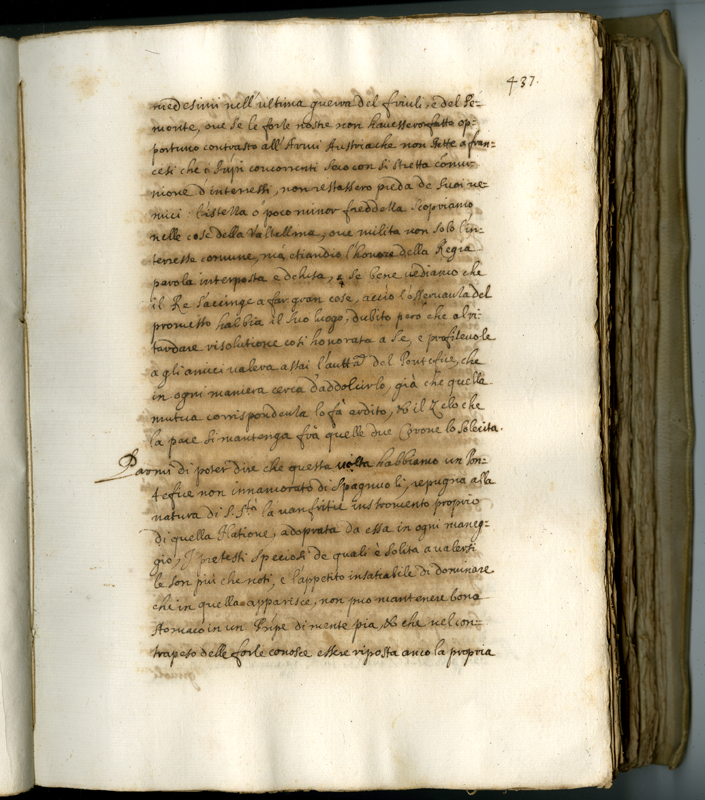 437.
medesimi nell'ultima guerra del friuli, e del Pe-
monte, oue se le forze nostre non hauessero fatto op-
portuno contrasto all'Armi Austriache non stette a fran-
cesi che i Prīpi concorrenti seco con si stretta comu-
nione d'interessi, non restassero preda de suoi ne-
mici. L'istessa ò poco minor freddezza scopriamo
nelle cose della Valtellina, oue milita non solo l'in-
terresse comune, mà etiandio l'honore della Regia
parola interposta e debita, e se bene vediamo che
il Re s'accinge a far gran cose, acciò l'osseruanza del
promesso habbia il suo luogo, dubito però che al ri-
tardare risolutione così honorata a se, e profiteuole
a gli amici valerà assai l'autt.à del Pontefice, che
in ogni maniera cerca d'addolcirlo, già che quella
mutua corrispondenza lo fà ardito, & il Zelo che
la pace si mantenga frà quelle due Corone lo solecita.
Parmi di poter dire che questa volta habbiamo un Pon-
tefice non innamorato di Spagnuoli, repugna alla
natura di S. S.tà la uanfritie instromento proprio
di quella Natione, adoprata da essa in ogni maneg-
gio, I pretesti speciosi de quali è solita a valersi
le son più che noti, e l'appetito insatiabile di dominare
che in quella apparisce, non puo mantenere bono
stomaco in un Prīpe di mente pia, & che nel con-
trapeso delle forze conosce essere riposta anco la propria